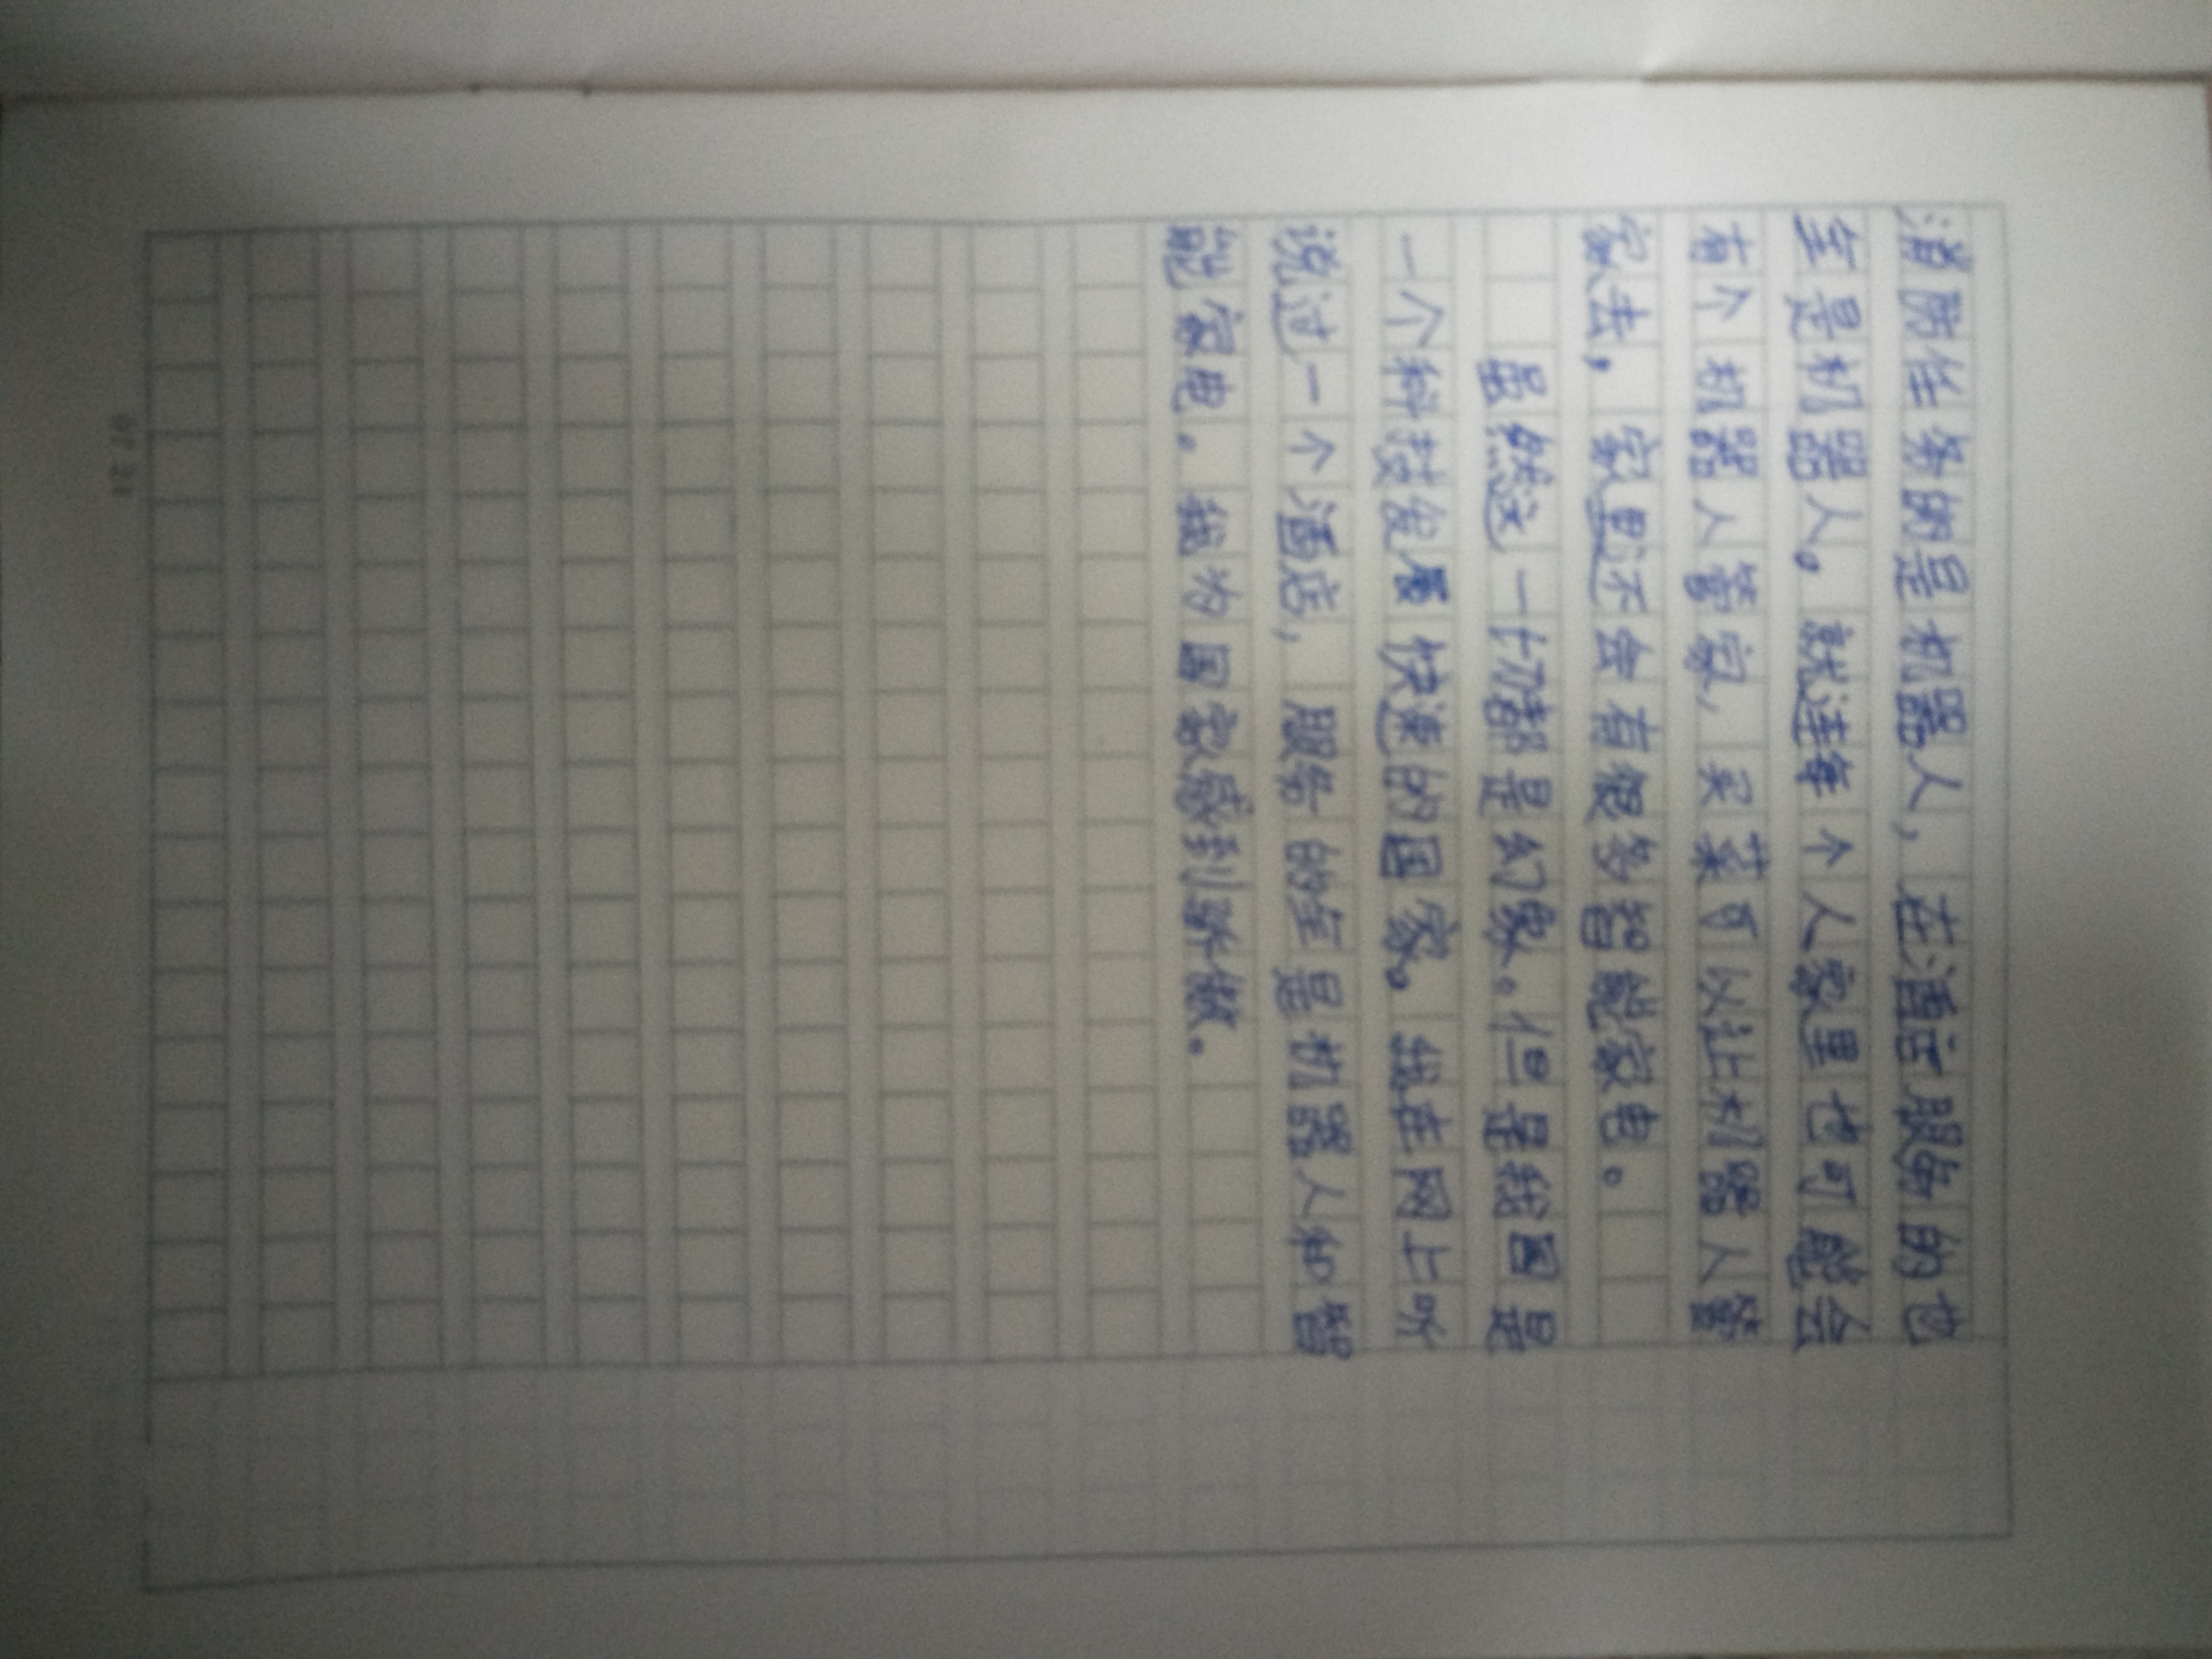 消防任务的是机器人，在酒店服务的也
全是机器人。就连每个人家里也可能会
有个机器人管家，买菜可以让机器人管
家去，家里还会有很多智能家电。
虽然这一切都是幻象。但是我国是
一个科技发展快速的国家。我在网上听
说过一个酒店，服务的全是机器人和智
能家电。我为国家感到骄傲。